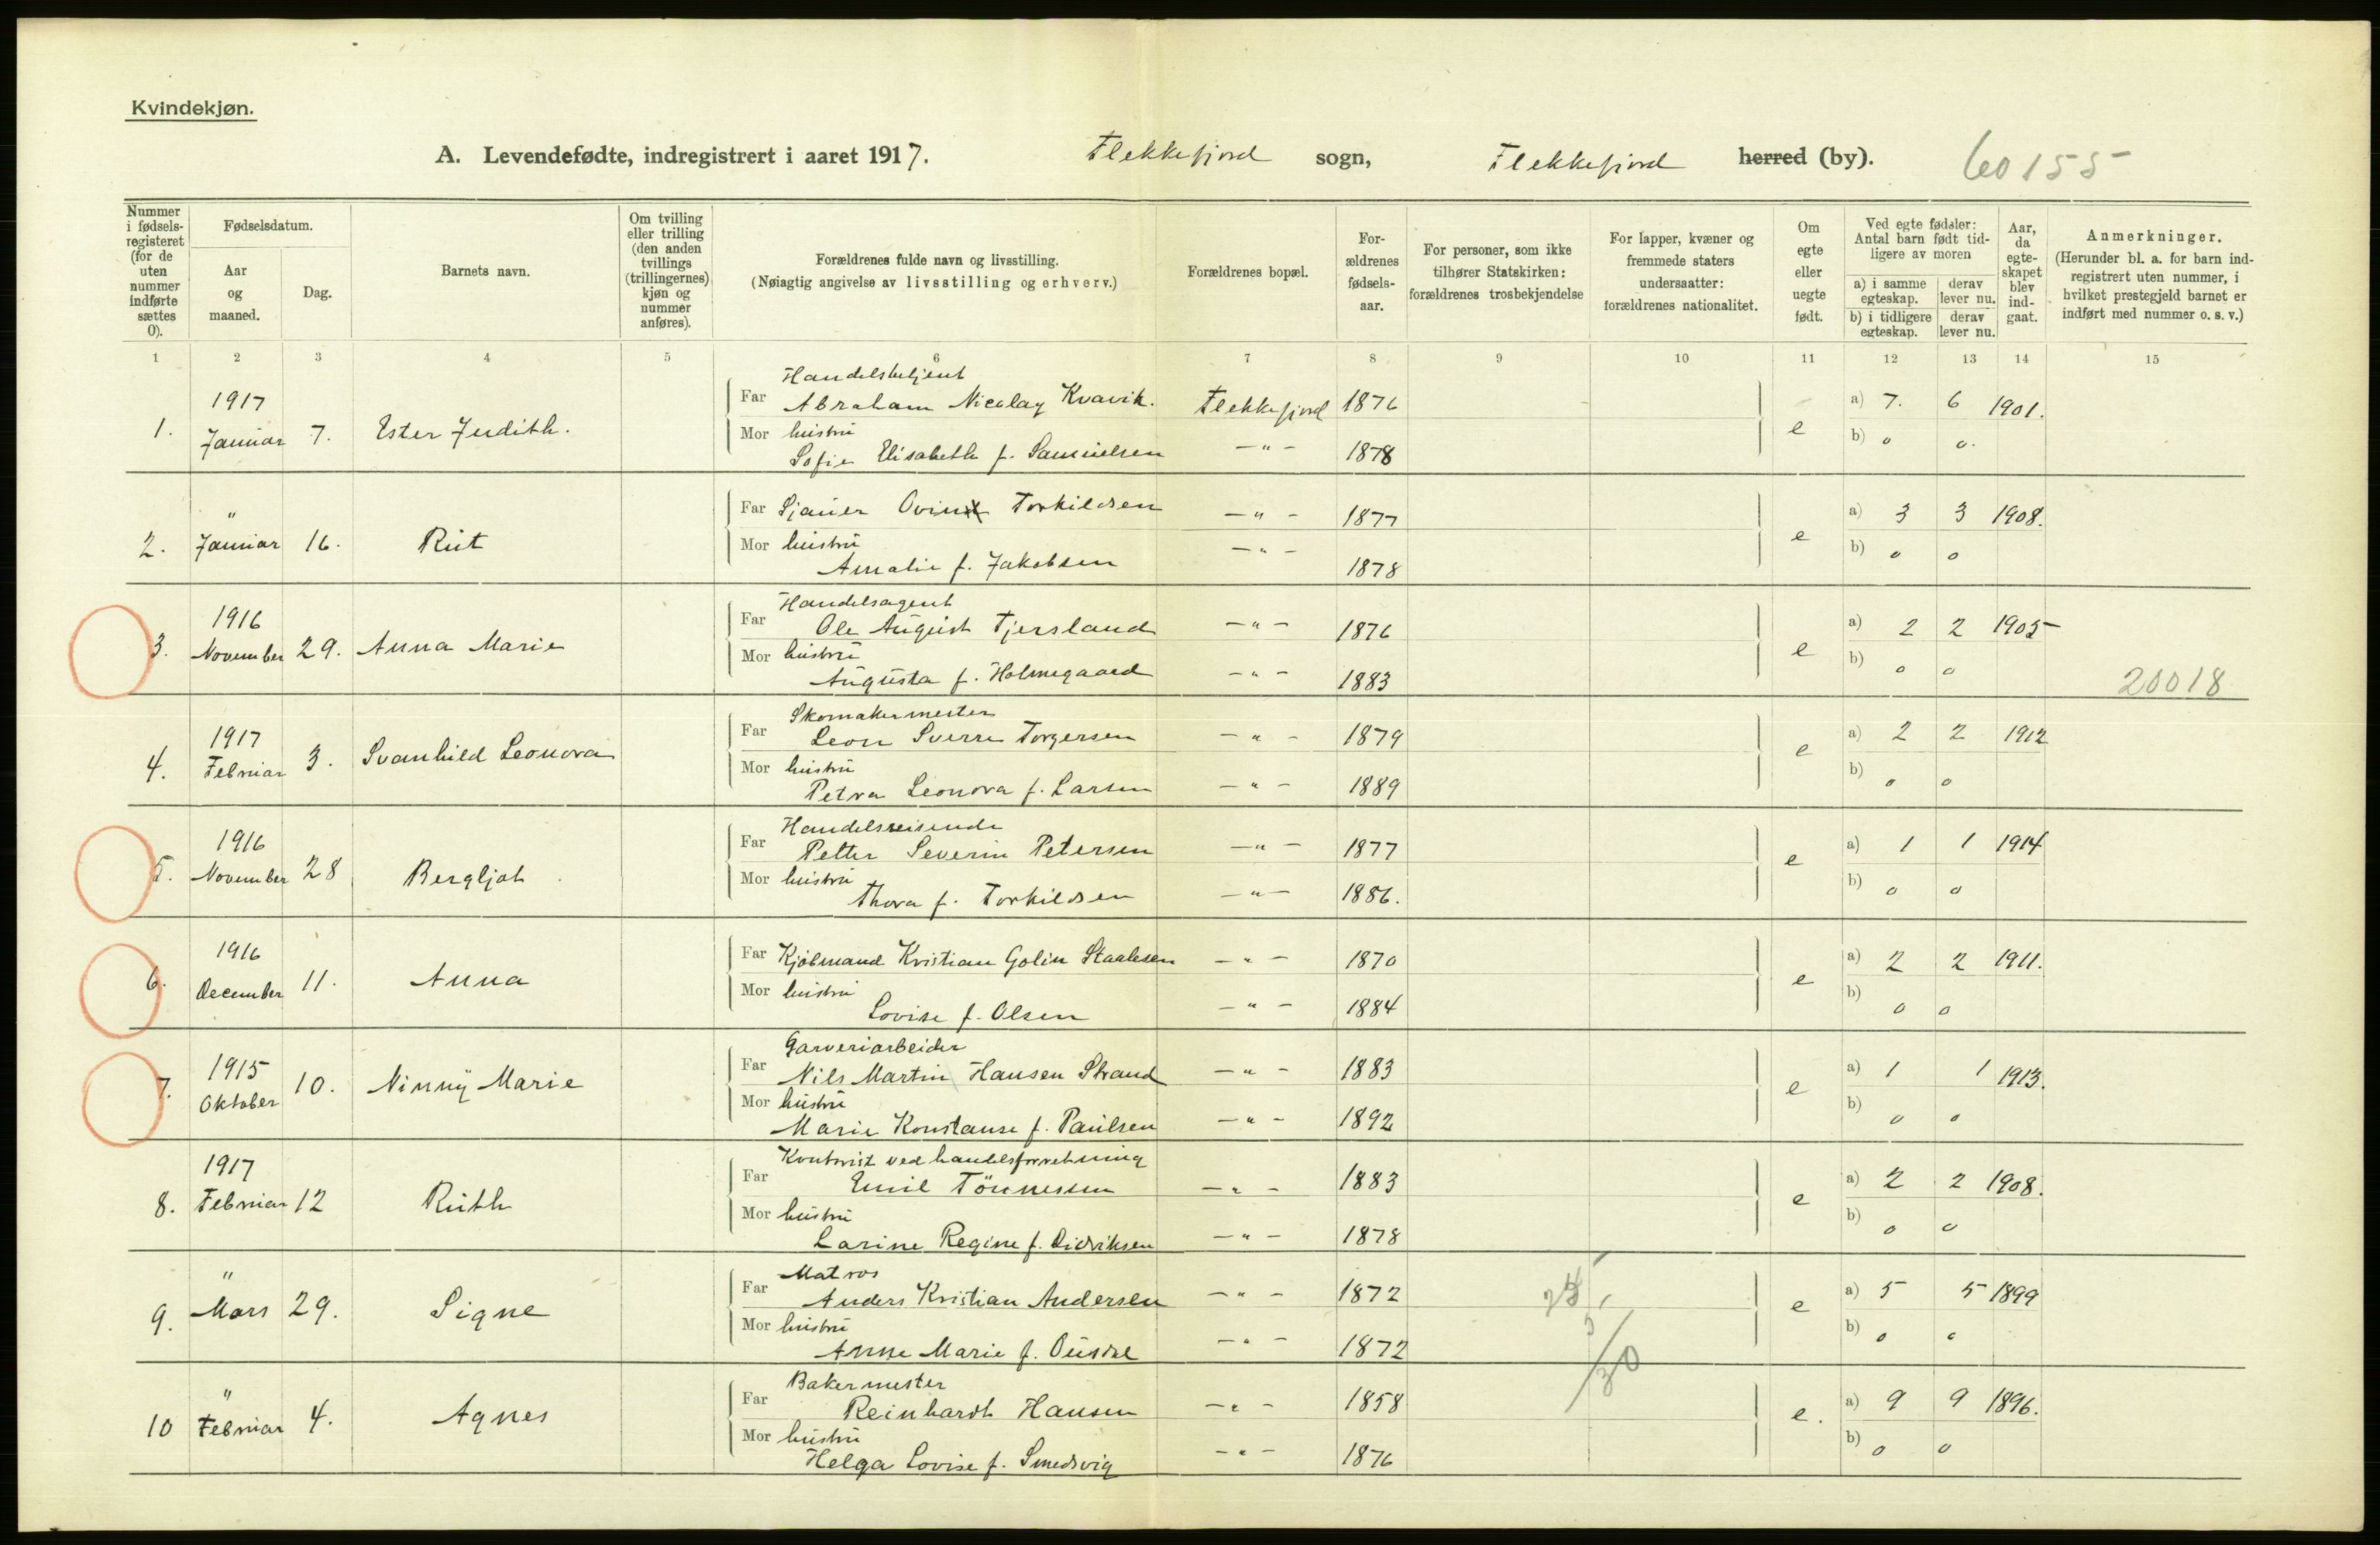 Kvindekjøn.
A. Levendefødte, indregistrert i aaret 1917. Flekkefjord sogn, Flekkefjord herred (by). 60155
Nummer i fødselsregisteret (for de uten nummer indførte sættes 0).
Fødselsdatum.
Aar og maaned.
Dag.
Barnets navn.
Om tvilling eller trilling (den anden tvillings (trillingernes) kjøn og nummer anføres).
Forældrenes fulde navn og livsstilling.
(Nøiagtig angivelse av livsstilling og erhverv.)
Forældrenes bopæl.
Forældrenes fødselsaar.
For personer, som ikke tilhører Statskirken: forældrenes trosbekjendelse
For lapper, kvæner og fremmede staters undersaatter: forældrenes nationalitet.
Om egte eller uegte født.
Ved egte fødsler: Antal barn født tidligere av moren
a) i samme egteskap. derav lever nu.
b) i tidligere egteskap. derav lever nu.
Aar, da egteskapet blev indgaat.
Anmerkninger.
(Herunder bl. a. for barn indregistrert uten nummer, i hvilket prestegjeld barnet er indført med nummer o. s. v.)
1 2 3 4 5 6 7 8 9 10 11 12 13 14 15
Handelsbetjent
1917 Far Abraham Nicolay Kvavik. Flekkefjord 1876 a) 7. 6 1901.
1. Januar 7. Ester Judith. Mor hustru e b) 0 0.
Sofie Elisabeth f. Samuelsen —"— 1878
" Far Sjauer Ovin Torkildsen —"— 1877 a) 3 3 1908.
2. Januar 16. Rut Mor hustru —"— e b) 0 0
Amalie f. Jakobsen 1878
Handelsagent
1916 Far Ole August Tjersland —"— 1876 a) 2 2 1905
3. November 29. Anna Marie Mor hustru e b) 0 0
Augusta f. Holmegaard —"— 1883 20018
Skomakermester
1917 Far Leon Sverre Torgersen —"— 1879 a) 2 2 1912
4. Februar 3. Svanhild Leonora Mor hustru e b) 0 0
Petra Leonora f. Larsen —"— 1889
Handelsreisende
1916 Far Petter Severin Petersen —"— 1877 a) 1 1 1914
5. November 28 Bergljot Mor hustru e b) 0 0
Thora f. Torkildsen —"— 1886.
1916 Far Kjøbmand Kristian Golin Staalesen —"— 1870 a) 2 2 1911.
6. December 11. Anna Mor hustru e b) 0 0
Lovise f. Olsen —"— 1884
Garveriarbeider
1915 Far Nils Martin Hansen Strand —"— 1883 a) 1 1 1913.
7. Oktober 10. Ninny Marie Mor hustru e b) 0 0
Marie Konstanse f. Paulsen —"— 1892
Kontorist ved handelsforretning
1917 Far Emil Tönnessen —"— 1883 a) 2 2 1908.
8. Februar 12 Ruth Mor hustru e b) 0 0
Larine Regine f. Didriksen —"— 1878
Matros
" Far Anders Kristian Andersen —"— 1872 a) 5 5 1899
9. Mars 29. Signe Mor hustru e b) 0 0
Anne Marie f. —"— 1872
Bakermester
" Far Reinhardt Hansen —"— 1858 a) 9 9 1896.
10 Februar 4. Agnes Mor hustru e. b) 0 0
Helga Lovise f. Smedsvig —"— 1876